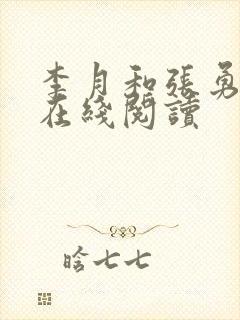 李月和張勇
在綫閱讀
晗七七